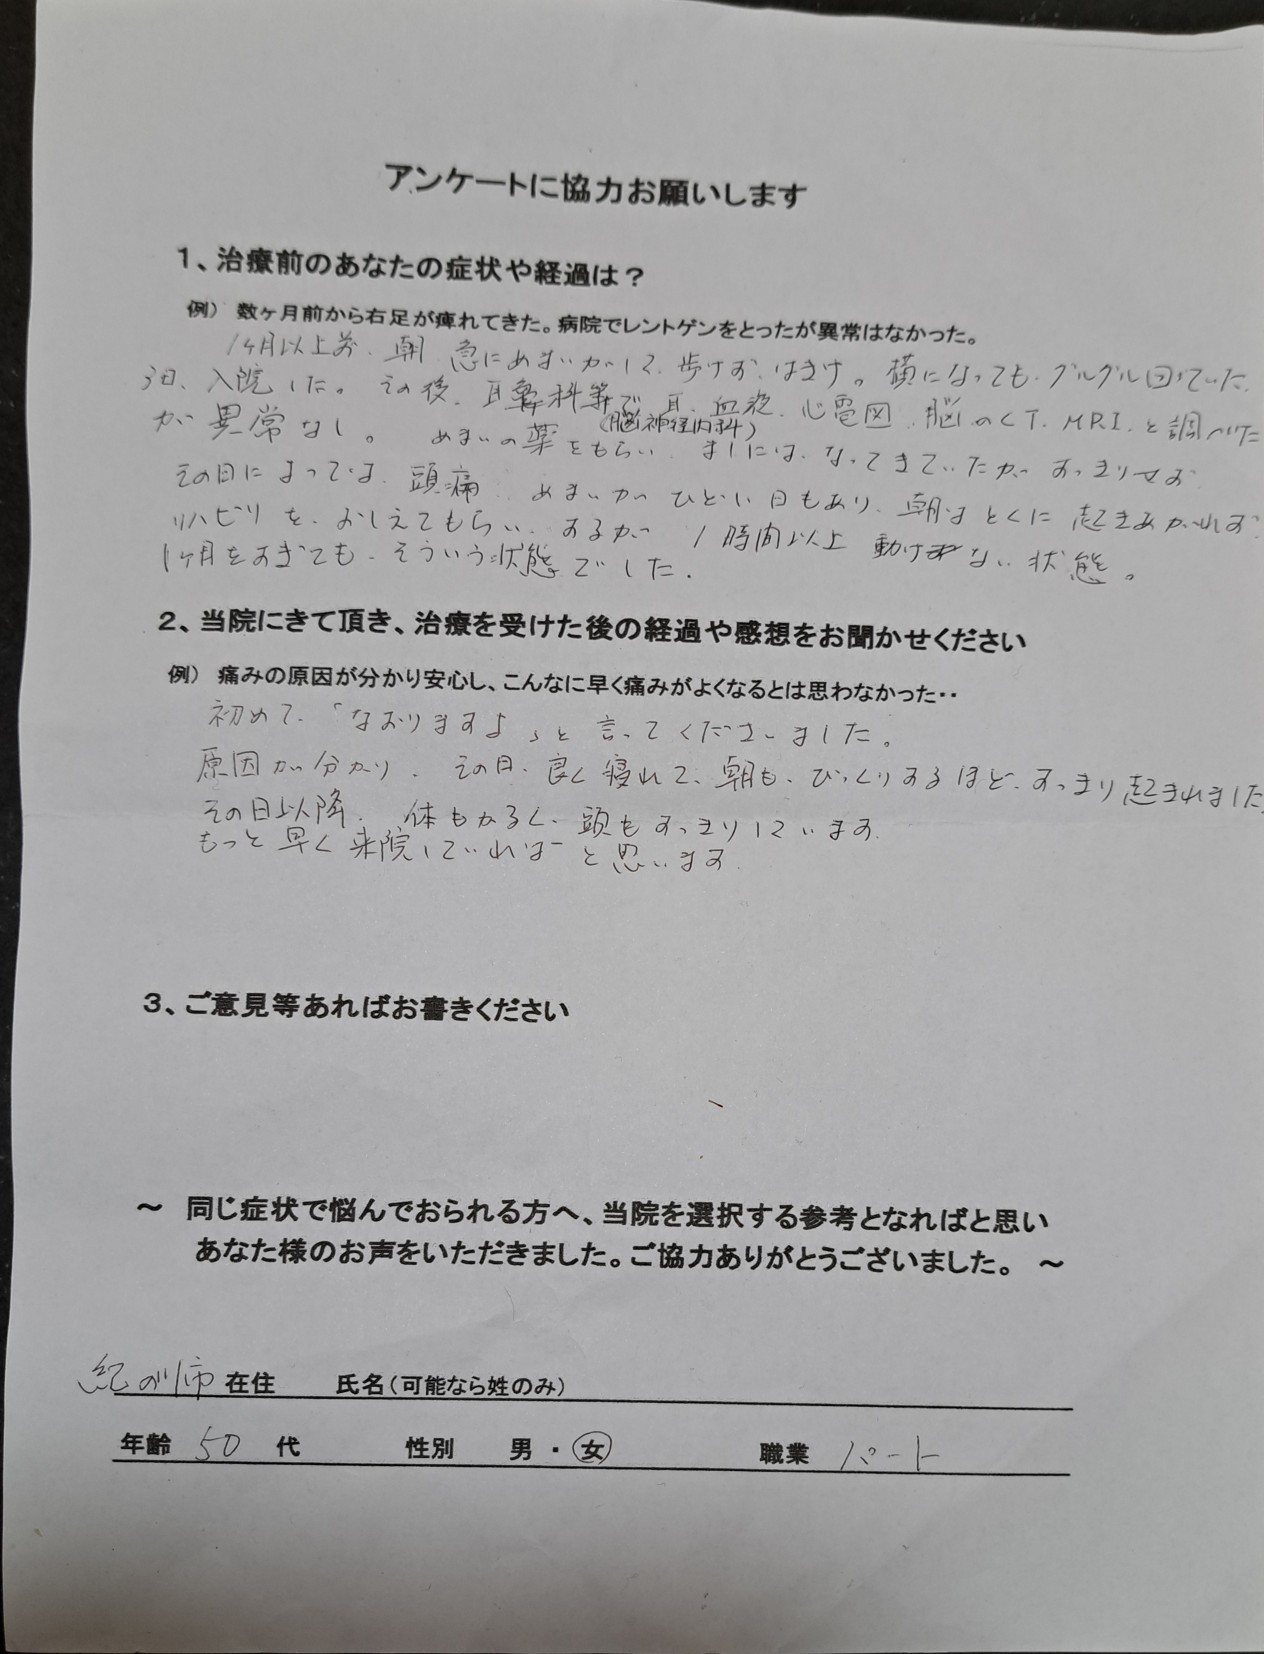 アンケートに協力お願いします
1、治療前のあなたの症状や経過は？
例） 数ヶ月前から右足が痺れてきた。病院でレントゲンをとったが異常はなかった。
1ヶ月以上前、朝 急にめまいがして、歩けず、はきけ。横になっても、グルグル回っていた、
3日、入院した。その後、耳鼻科等で、耳、血液、心電図、脳のCT、MRI、と調べた
(脳神経内科)
が異常なし。 めまいの薬をもらい、ましには、なってきていたが すっきりせず
その日によっては、頭痛、めまいがひどい日もあり、朝はとくに起きあがれず、
リハビリを、おしえてもらい、するが 1時間以上 動けない状態。
1ヶ月をすぎても、そういう状態でした。
2、当院にきて頂き、治療を受けた後の経過や感想をお聞かせください
例） 痛みの原因が分かり安心し、こんなに早く痛みがよくなるとは思わなかった・・
初めて、「なおりますよ」と言ってくださいました。
原因が分かり、その日、良く寝れて、朝も、びっくりするほど、すっきり起きれました
その日以降、体もかるく、頭もすっきりしています。
もっと早く来院していればーと思います。
3、ご意見等あればお書きください
～ 同じ症状で悩んでおられる方へ、当院を選択する参考となればと思い
あなた様のお声をいただきました。ご協力ありがとうございました。 ～
紀の川市 在住 氏名（可能なら姓のみ）
年齢 50 代 性別 男 ・ 女 職業 パート